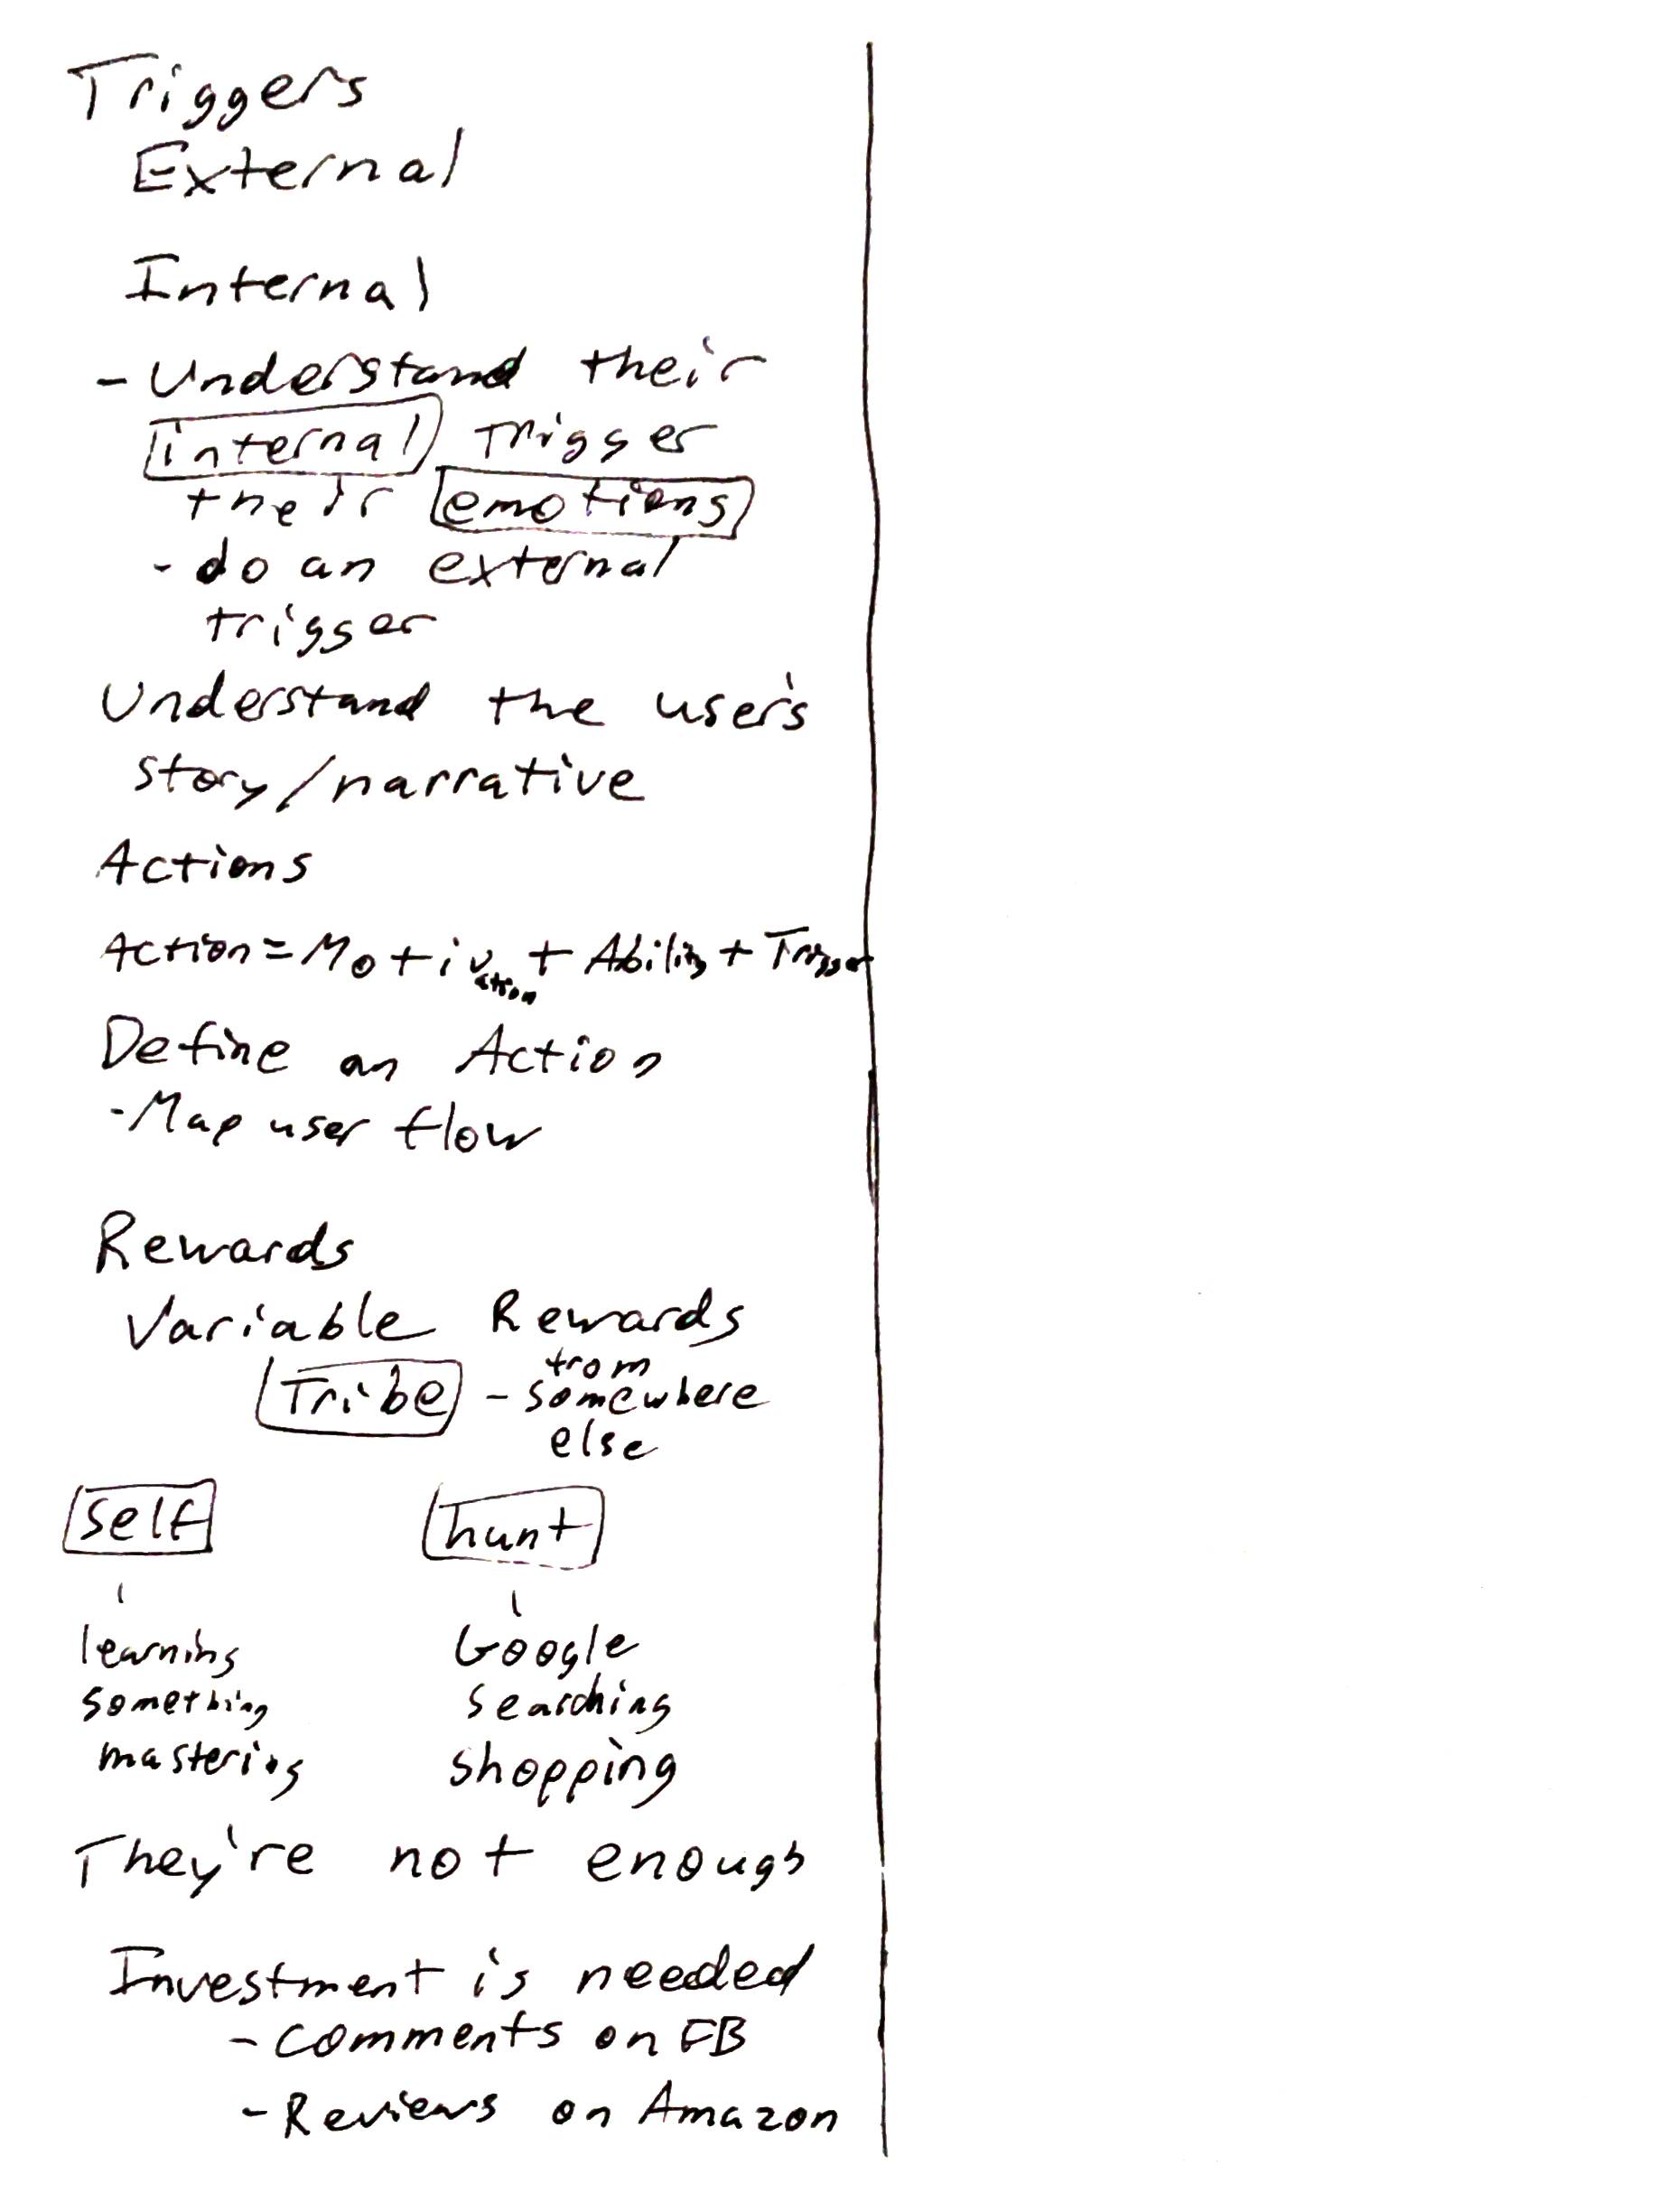 Triggers
External
Internal
- Understand their
internal Trigger
their emotions
- do an external
trigger
Understand the user's
story/narrative
Actions
Action = Motivation + Ability + Trigger
Define an Action
- Map user flow
Rewards
Variable Rewards
Tribe - from somewhere else
self hunt
learning Google
something searching
mastering shopping
They're not enough
Investment is needed
- Comments on FB
- Reviews on Amazon